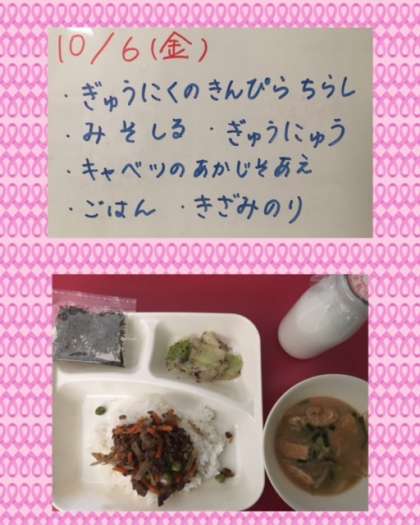 10/6(金)
・ぎゅうにくのきんぴらちらし
・みそしる ・ぎゅうにゅう
・キャベツのあかじそあえ
・ごはん ・きざみのり